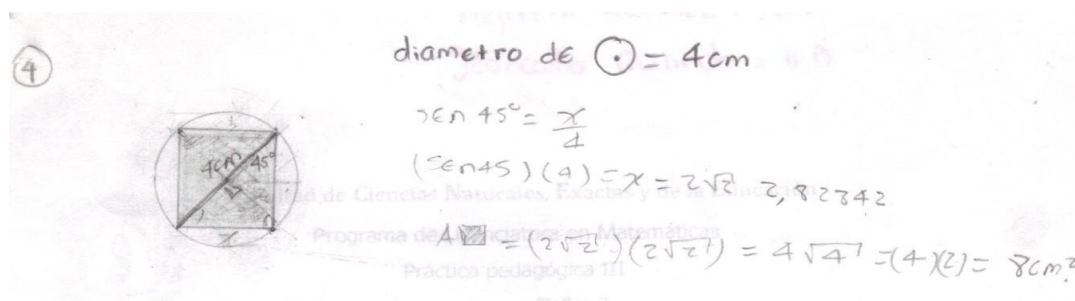 4
diametro de ⊙ = 4cm
sen 45° = x/4
4cm 45°
(sen45)(4) = x = 2√2 2,82842
x
A▨ = (2√2)(2√2) = 4√4 = (4)(2) = 8cm²
de Ciencias Naturales, Exactas y de la Educación
Programa de Licenciatura en Matemáticas
Práctica pedagógica III